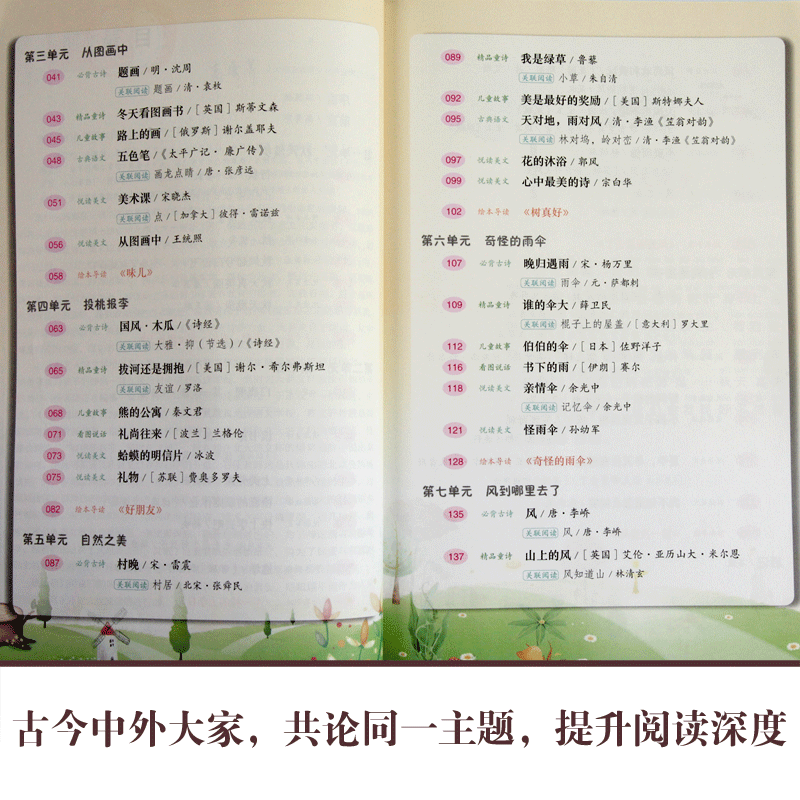 第三单元 从图画中
041 必背古诗 题画/明·沈周
关联阅读 题画/清·袁枚
043 精品童诗 冬天看图画书/[英国]斯蒂文森
045 儿童故事 路上的画/[俄罗斯]谢尔盖耶夫
048 古典语文 五色笔/《太平广记·廉广传》
关联阅读 画龙点睛/唐·张彦远
051 悦读美文 美术课/宋晓杰
关联阅读 点/[加拿大]彼得·雷诺兹
056 悦读美文 从图画中/王统照
058 绘本导读 《味儿》
第四单元 投桃报李
063 必背古诗 国风·木瓜/《诗经》
关联阅读 大雅·抑(节选)/《诗经》
065 精品童诗 拔河还是拥抱/[美国]谢尔·希尔弗斯坦
关联阅读 友谊/罗洛
068 儿童故事 熊的公寓/秦文君
071 看图说话 礼尚往来/[波兰]兰格伦
073 悦读美文 蛤蟆的明信片/冰波
075 悦读美文 礼物/[苏联]费奥多罗夫
082 绘本导读 《好朋友》
第五单元 自然之美
087 必背古诗 村晚/宋·雷震
关联阅读 村居/北宋·张舜民
089 精品童诗 我是绿草/鲁藜
关联阅读 小草/朱自清
092 儿童故事 美是最好的奖励/[美国]斯特娜夫人
095 古典语文 天对地,雨对风/清·李渔《笠翁对韵》
关联阅读 林对坞,岭对峦/清·李渔《笠翁对韵》
097 悦读美文 花的沐浴/郭风
099 悦读美文 心中最美的诗/宗白华
102 绘本导读 《树真好》
第六单元 奇怪的雨伞
107 必背古诗 晚归遇雨/宋·杨万里
关联阅读 雨伞/元·萨都剌
109 精品童诗 谁的伞大/薛卫民
关联阅读 棍子上的屋盖/[意大利]罗大里
112 儿童故事 伯伯的伞/[日本]佐野洋子
116 看图说话 书下的雨/[伊朗]赛尔
118 悦读美文 亲情伞/余光中
关联阅读 记忆伞/余光中
121 悦读美文 怪雨伞/孙幼军
128 绘本导读 《奇怪的雨伞》
第七单元 风到哪里去了
135 必背古诗 风/唐·李峤
关联阅读 风/唐·李峤
137 精品童诗 山上的风/[英国]艾伦·亚历山大·米尔恩
关联阅读 风知道山/林清玄
古今中外大家，共论同一主题，提升阅读深度